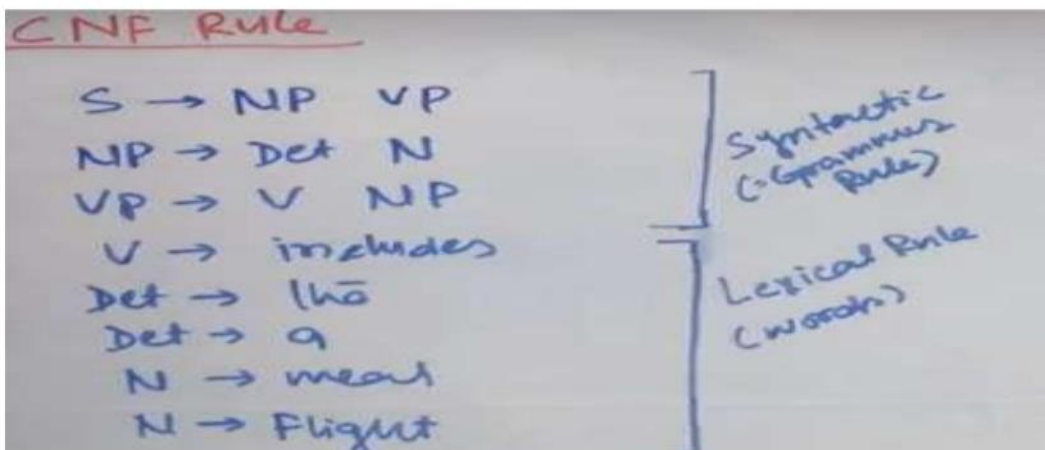 CNF Rule
S → NP VP
NP → Det N
VP → V NP
V → includes
Det → the
Det → a
N → meal
N → Flight
Syntactic
(:Grammar
Rule)
Lexical Rule
(words)